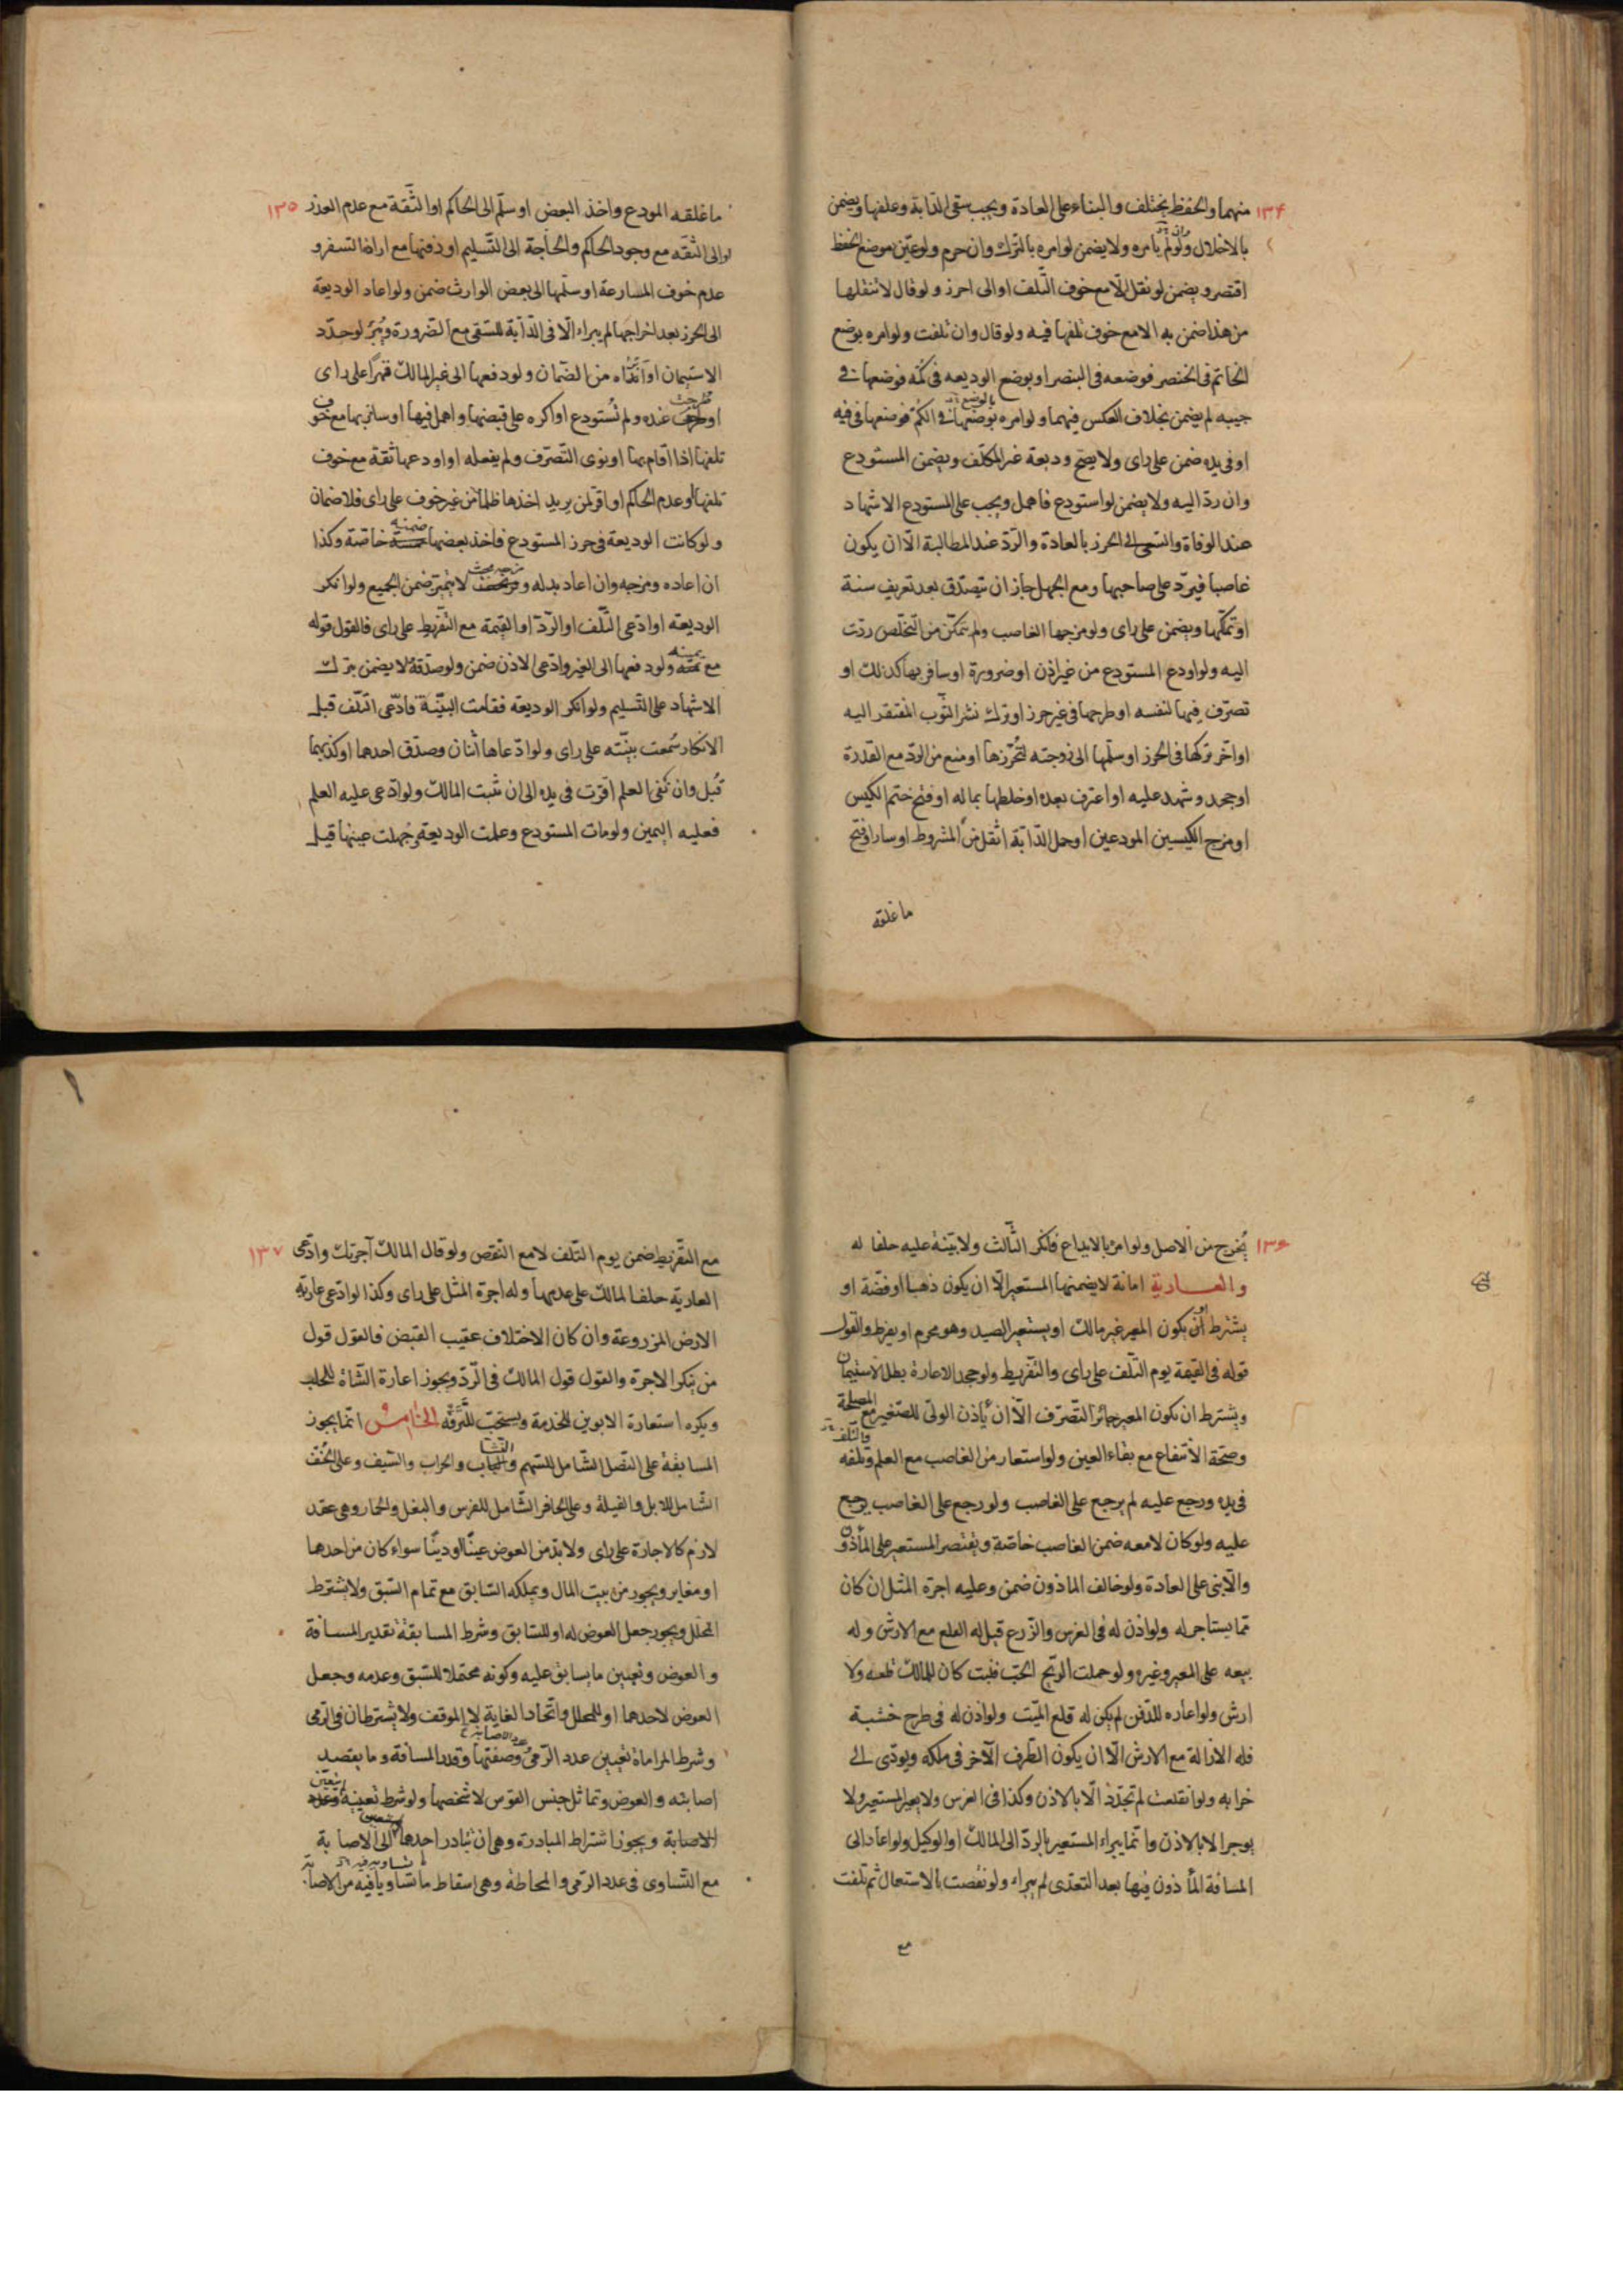 ١٣۴
منهما والحفظ يختلف والبناء على العادة ويجب سقى الدّابة وعلفها ويضمن
بالاخلال ولو لم يامره ولا يضمن لو امره بالترك وان حرم ولو عيّن موضع الحفظ
اقتصر ويضمن لو نقل الّا مع خوف التّلف او الى احرز ولو قال لا تنقلها
من هذا ضمن به الا مع خوف تلفها فيه ولو قال وان تلفت ولو امره بوضع
الخاتم فى الخنصر فوضعه فى البنصر او بوضع الوديعه فى كمّه فوضعها فى
جيبه لم يضمن بخلاف العكس فيهما ولو امره بوضعها فى الكمّ فوضعها فى فيه
او فى يده ضمن على راى ولا يصح وديعة غير المكلّف ويضمن المستودع
وان ردّ اليه ولا يضمن لو استودع فاهمل ويجب على المستودع الاشهاد
عند الوفاة والسّعى الى الحرز بالعادة والرّد عند المطالبة الّا ان يكون
غاصبا فيردّ على صاحبها ومع الجهل جاز ان يتصدّق بعد تعريف سنة
او تملّكها ويضمن على راى ولو مزجها الغاصب ولم يتمكّن من التّخلّص ردّت
اليه ولو اودع المستودع من غير اذن او ضرورة او سافر بها كذلك او
تصرّف فيها لنفسه او طرحها فى غير حرز او ترك نشر الثّوب المفتقر اليه
او اخّر تركها فى الحرز او سلّمها الى زوجته لتحرزها او منع من الردّ مع القدرة
او جحد وشهد عليه او اعترف بعده او خلطها بماله او فتح ختم الكيس
او مزج الكيسين المودعين او حمل الدّابّة اثقل من المشروط او سار او فتح
ما غلقه
١٣٥
ما غلقه المودع واخذ البعض او سلّم الى الحاكم او الثّقة مع عدم العذر
او الى الثقه مع وجود الحاكم والحاجة الى التّسليم او دفنها مع اراضا لتسفر و
عدم خوف المسارعة او سلّمها الى بعض الوارث ضمن ولو اعاد الوديعة
الى الحرز بعد اخراجها لم يبراء الّا فى الدّابة للسّقى مع الضّرورة ويبرء لو جدّد
الاستيمان او ابراه من الضّمان ولو دفعها الى غير المالك قهرًا على راى
او طرحت عنده ولم تُستودع او اكره على قبضها واهمل فيها او سافر بها مع خوف
تلفها اذا اقام بها او نوى التّصرّف ولم يفعله او اودعها ثقة مع خوف
تلفها او عدم الحاكم او اقرّ لمن يريد اخذها ظلما من غير خوف على راى فلا ضمان
ولو كانت الوديعة فى حرز المستودع فاخذ بعضها ضمنه خاصّة وكذا
ان اعاده ومزجه وان اعاد بدله ومزجه بحيث لا يتميّز ضمن الجميع ولو انكر
الوديعة او ادّعى التّلف او الرّدّ او القيمة مع التّفريط على راى فالقول قوله
مع يمينه ولو دفعها الى الغير وادّعى الاذن ضمن ولو صدّقه لا يضمن بترك
الاشهاد على التّسليم ولو انكر الوديعة فقامت البيّنة فادّعى التّلف قبل
الانكار سُمعت بيّنته على راى ولو ادّعاها اثنان وصدّق احدهما او كذّبهما
قُبل وان نفى العلم اقرّت فى يده الى ان يثبت المالك ولو ادّعى عليه العلم
فعليه اليمين ولو مات المستودع وعلمت الوديعة وجُهلت عينها قيل
١٣۶
يُخرج من الاصل ولو امره بالايداع فانكر الثّالث ولا بيّنة عليه حلفا له
والعارية امانة لا يضمنها المستعير الّا ان يكون ذهبا او فضّة او
يشترط او يكون المعير غير مالك او يستعير الصيد وهو محرم او يفرط والقول
قوله فى القيمة يوم التّلف على راى والتّفريط ولو جحد الاعارة بطل الاستيمان
ويشترط ان يكون المعير جائز التّصرّف الّا ان ياذن الولىّ للصّغير مع المصلحة
وصحّة الانتفاع مع بقاء العين ولو استعار من الغاصب مع العلم وتلفه
فى يده ورجع عليه لم يرجع على الغاصب ولو رجع على الغاصب يرجع
عليه ولو كان لا معه ضمن الغاصب خاصّة ويقتصر المستعير على المأذون
والّا بنى على العادة ولو خالف الماذون ضمن وعليه اجرة المثل ان كان
ممّا يستاجر له ولو اذن له فى الغرس والزّرع قبل له القلع مع الارش وله
بيعه على المعير وغيره ولو حملت الرّيح الحَبّ فنبت كان للمالك قلعه ولا
ارش ولو اعاره للدّفن لم يكن له قلع الميّت ولو اذن له فى طرح خشبة
فله الازالة مع الارش الّا ان يكون الطّرف الآخر فى ملكه ويودّى الى
خرابه ولو انقلعت لم تجدّد الّا بالاذن وكذا فى الغرس ولا يعير المستعير ولا
يوجر الا بالاذن وانّما يبراء المستعير بالردّ الى المالك او الوكيل ولو اعاد الى
المسافة المأذون فيها بعد التعدّى لم يبراء ولو نقصت بالاستعمال ثم تلفت
مع
١٣٧
مع التّفريط ضمن يوم التّلف لا مع النّقص ولو قال المالك آجرتك وادّعى
العاريّة حلف المالك على عدمها وله اجرة المثل على راى وكذا لو ادّعى عارية
الارض المزروعة وان كان الاختلاف عقيب القبض فالقول قول
من ينكر الاجرة والقول قول المالك فى الرّدّ ويجوز اعارة الشّاة للحلب
ويكره استعارة الابوين للخدمة ويستحبّ للتّرفّه الخامس انّما يجوز
المسابقة على النّصل الشّامل للسّهم والنشاب والحراب والسّيف وعلى الخفّ
الشّامل للابل والفيلة وعلى الحافر الشّامل للفرس والبغل والحمار وهى عقد
لازم كالاجارة على راى ولا بدّ من العوض عينًا او دينًا سواء كان من احدهما
او مغاير ويجوز من بيت المال ويملكه السّابق مع تمام السّبق ولا يشترط
المحلّل ويجوز جعل العوض له او للسّابق وشرط المسابقة تقدير المسافة
والعوض وتعيين ما يسابق عليه وكونه محتملا للسّبق وعدمه وجعل
العوض لاحدهما او للمحلل واتّحاد الغاية لا الموقف ولا يشترطان فى الرّمى
وشرط المراماة تعيين عدد الرّمى وعدد الاصابة وصفتها وقدر المسافة وما يقصد
اصابته والعوض وتماثل جنس القوس لا شخصها ولو شرط تعيينه
الاصابة ويجوز اشتراط المبادرة وهى ان يبادر احدهما الى الاصابة
مع التّساوى فى عدد الرّمى والمحاطة وهى اسقاط ما تساويا فيه من الاصابة